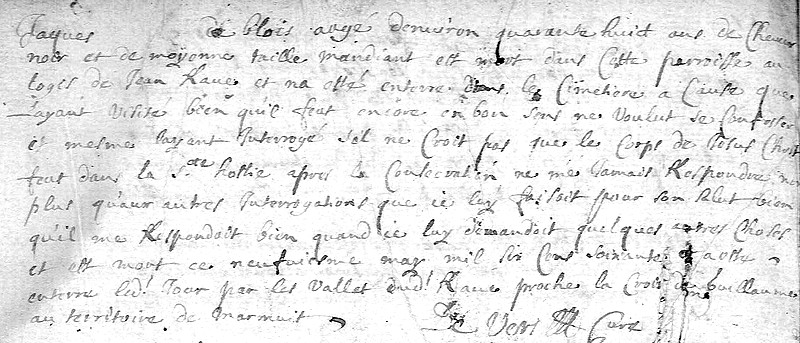 Jaques de blois aagé denviron quarante huit ans de Cheveux
noir et de moyenne taille mandiant est mort dans Cette perroisse au
logis de Jean Raue et na esté enterre dans le Cimetiere a Cause que
Layant visité bien qu'il feut encore en bon sens ne voulut se Confesser
et mesme Layant Interrogé sil ne Croit pas que le Corps de Jesus Christ
feut dans la Ste hostie apres la Consecration ne me Jamais Respondre non
plus qu'aux autres Interrogations que ie luy faisoit pour son salut bien
quil me Respondoit bien quand ie luy demandoit quelques autres Choses
et est mort ce neufviesme may mil six Cens soixante et
enterre led! Jour par les vallet dud! Raue proche la Croix de Guillaume
au territoire de marmuit
Curé